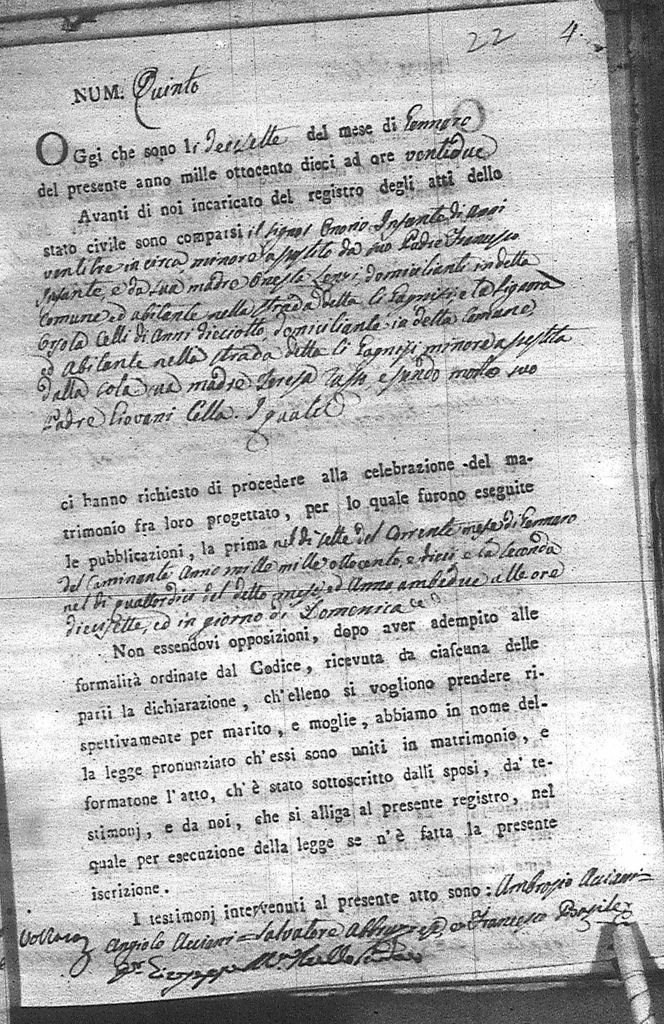 22 4.
NUM. Quinto
OGgi che sono li decisette del mese di Gennaro
del presente anno mille ottocento dieci ad ore ventidue
Avanti di noi incaricato del registro degli atti dello
stato civile sono comparsi il signor Onorio Infante di anni
ventitre in circa, minore assistito da suo Padre Francesco
Infante, e da sua madre Onesta domicilianti in detta
Comune, ed abitante nella strada detta li Pagnisi, e la Signora
Orsola Celli di Anni diciotto domiciliante in detta Comune,
ed Abitante nella strada detta li Pagnisi minore assistita
dalla sola sua madre Teresa essendo morto suo
Padre Giovani Cella. I quali
ci hanno richiesto di procedere alla celebrazione del ma-
trimonio fra loro progettato, per lo quale furono eseguite
le pubblicazioni, la prima nel dì sette del Corrente mese di Gennaro
del Caminante Anno mille mille ottocento, e dieci e la seconda
nel dì quattordici del detto mese, ed Anno ambedue alle ore
diecisette, ed in giorno di Domenica
Non essendovi opposizioni, dopo aver adempito alle
formalità ordinate dal Codice, ricevuta da ciascuna delle
parti la dichiarazione, ch'elleno si vogliono prendere ri-
spettivamente per marito, e moglie, abbiamo in nome del-
la legge pronunziato ch'essi sono uniti in matrimonio, e
formatone l'atto, ch'è stato sottoscritto dalli sposi, da' te-
stimonj, e da noi, che si alliga al presente registro, nel
quale per esecuzione della legge se n'è fatta la presente
iscrizione.
I testimonj intervenuti al presente atto sono: Ambrosio Acciani=
Angiolo Acciani=Salvatore Abbruzzese, e Francesco Basile